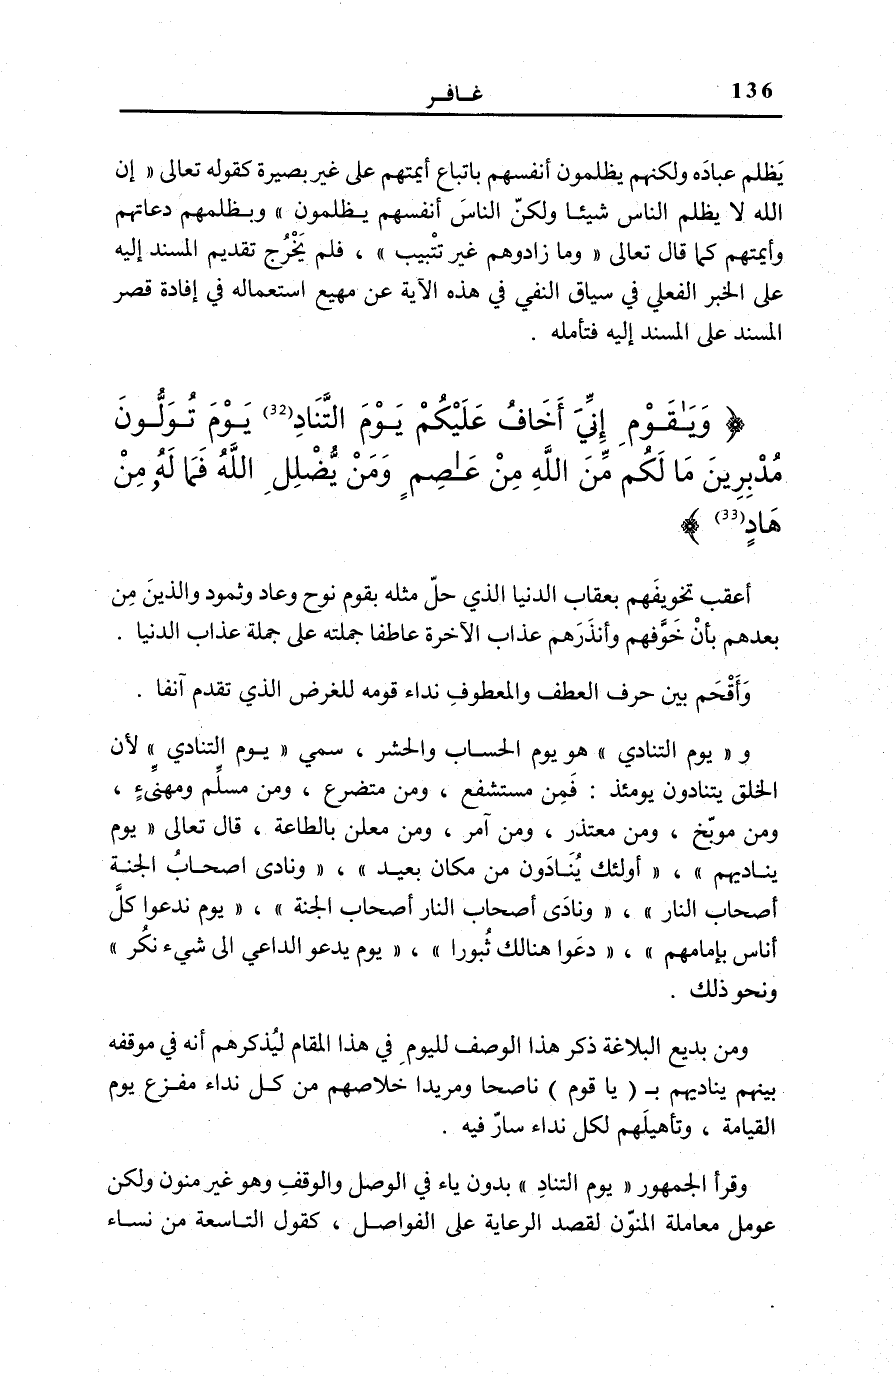 136
غـافـر
يَظلم عبادَه ولكنهم يظلمون أنفسهم باتباع أيمتهم على غير بصيرة كقوله تعالى « إن
الله لا يظلم الناس شيئـا ولكنّ الناسَ أنفسهم يـظلمون » وبـظلمهم دعاتهم
وأيمتهم كما قال تعالى « وما زادوهم غير تتْبيب » ، فلم يَخْرُج تقديم المسند إليه
على الخبر الفعلي في سياق النفي في هذه الآية عن مهيع استعماله في إفادة قصر
المسند على المسند إليه فتأمله .
﴿ وَيَـٰقَـوْمِ إِنِّيَ أَخَافُ عَلَيْكُمْ يَـوْمَ التَّنَادِ(32) يَـوْمَ تُـوَلُّـونَ
مُدْبِرِينَ مَا لَكُم مِّنَ اللَّهِ مِنْ عَـٰصِمٍ وَمَنْ يُّضْلِلِ اللَّهُ فَمَا لَهُ, مِنْ
هَادٍ(33) ﴾
أعقب تخويفَهم بعقاب الدنيا الذي حلّ مثله بقوم نوح وعاد وثمود والذينَ مِن
بعدهم بأنْ خَوَّفهم وأنذَرَهم عذاب الآخرة عاطفا جملته على جملة عذاب الدنيا .
وَأَقْحَم بين حرف العطف والمعطوفِ نداء قومه للغرض الذي تقدم آنفا .
و « يوم التنادي » هو يوم الحسـاب والحشر ، سمي « يـوم التنادي » لأن
الخلق يتنادون يومئذ : فَمِن مستشفع ، ومن متضرع ، ومن مسلِّم ومهنىءٍ ،
ومن موبّخ ، ومن معتذر ، ومن آمر ، ومن معلن بالطاعة ، قال تعالى « يوم
ينـاديهم » ، « أولئك يُنَـادَون من مكان بعيـد » ، « ونادى اصحـابُ الجنـة
أصحاب النار » ، « ونادَى أصحاب النار أصحاب الجنة » ، « يوم ندعوا كلَّ
أناس بإمامهم » ، « دعَوا هنالك ثُبورا » ، « يوم يدعو الداعي الى شيء نكُر »
ونحو ذلك .
ومن بديع البلاغة ذكر هذا الوصف لليومِ في هذا المقام ليُذكرهم أنه في موقفه
بينهم يناديهم بـ ( يا قوم ) ناصحا ومريدا خلاصهم من كـل نداء مفـزع يوم
القيامة ، وتأهيلَهم لكل نداء سارّ فيه .
وقرأ الجمهور « يوم التنادِ » بدون ياء في الوصل والوقفِ وهو غير منون ولكن
عومل معاملة المنوّن لقصد الرعاية على الفواصـل ، كقول التـاسعة من نسـاء